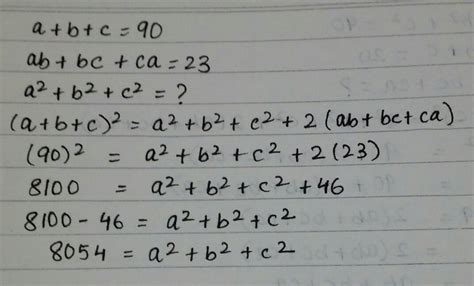 a+b+c = 90
ab + bc + ca = 23
a² + b² + c² = ?
(a+b+c)² = a² + b² + c² + 2 (ab + bc + ca)
(90)² = a² + b² + c² + 2 (23)
8100 = a² + b² + c² + 46
8100 - 46 = a² + b² + c²
8054 = a² + b² + c²